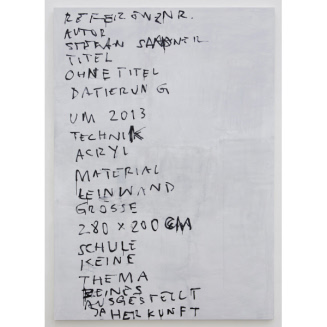 REFERENZNR.
AUTOR
STEFAN SANDNER
TITEL
OHNE TITEL
DATIERUNG
UM 2013
TECHNIK
ACRYL
MATERIAL
LEINWAND
GRÖSSE
280 × 200 CM
SCHULE
KEINE
THEMA
KEINES
AUSGESTELLT
JA HERKUNFT